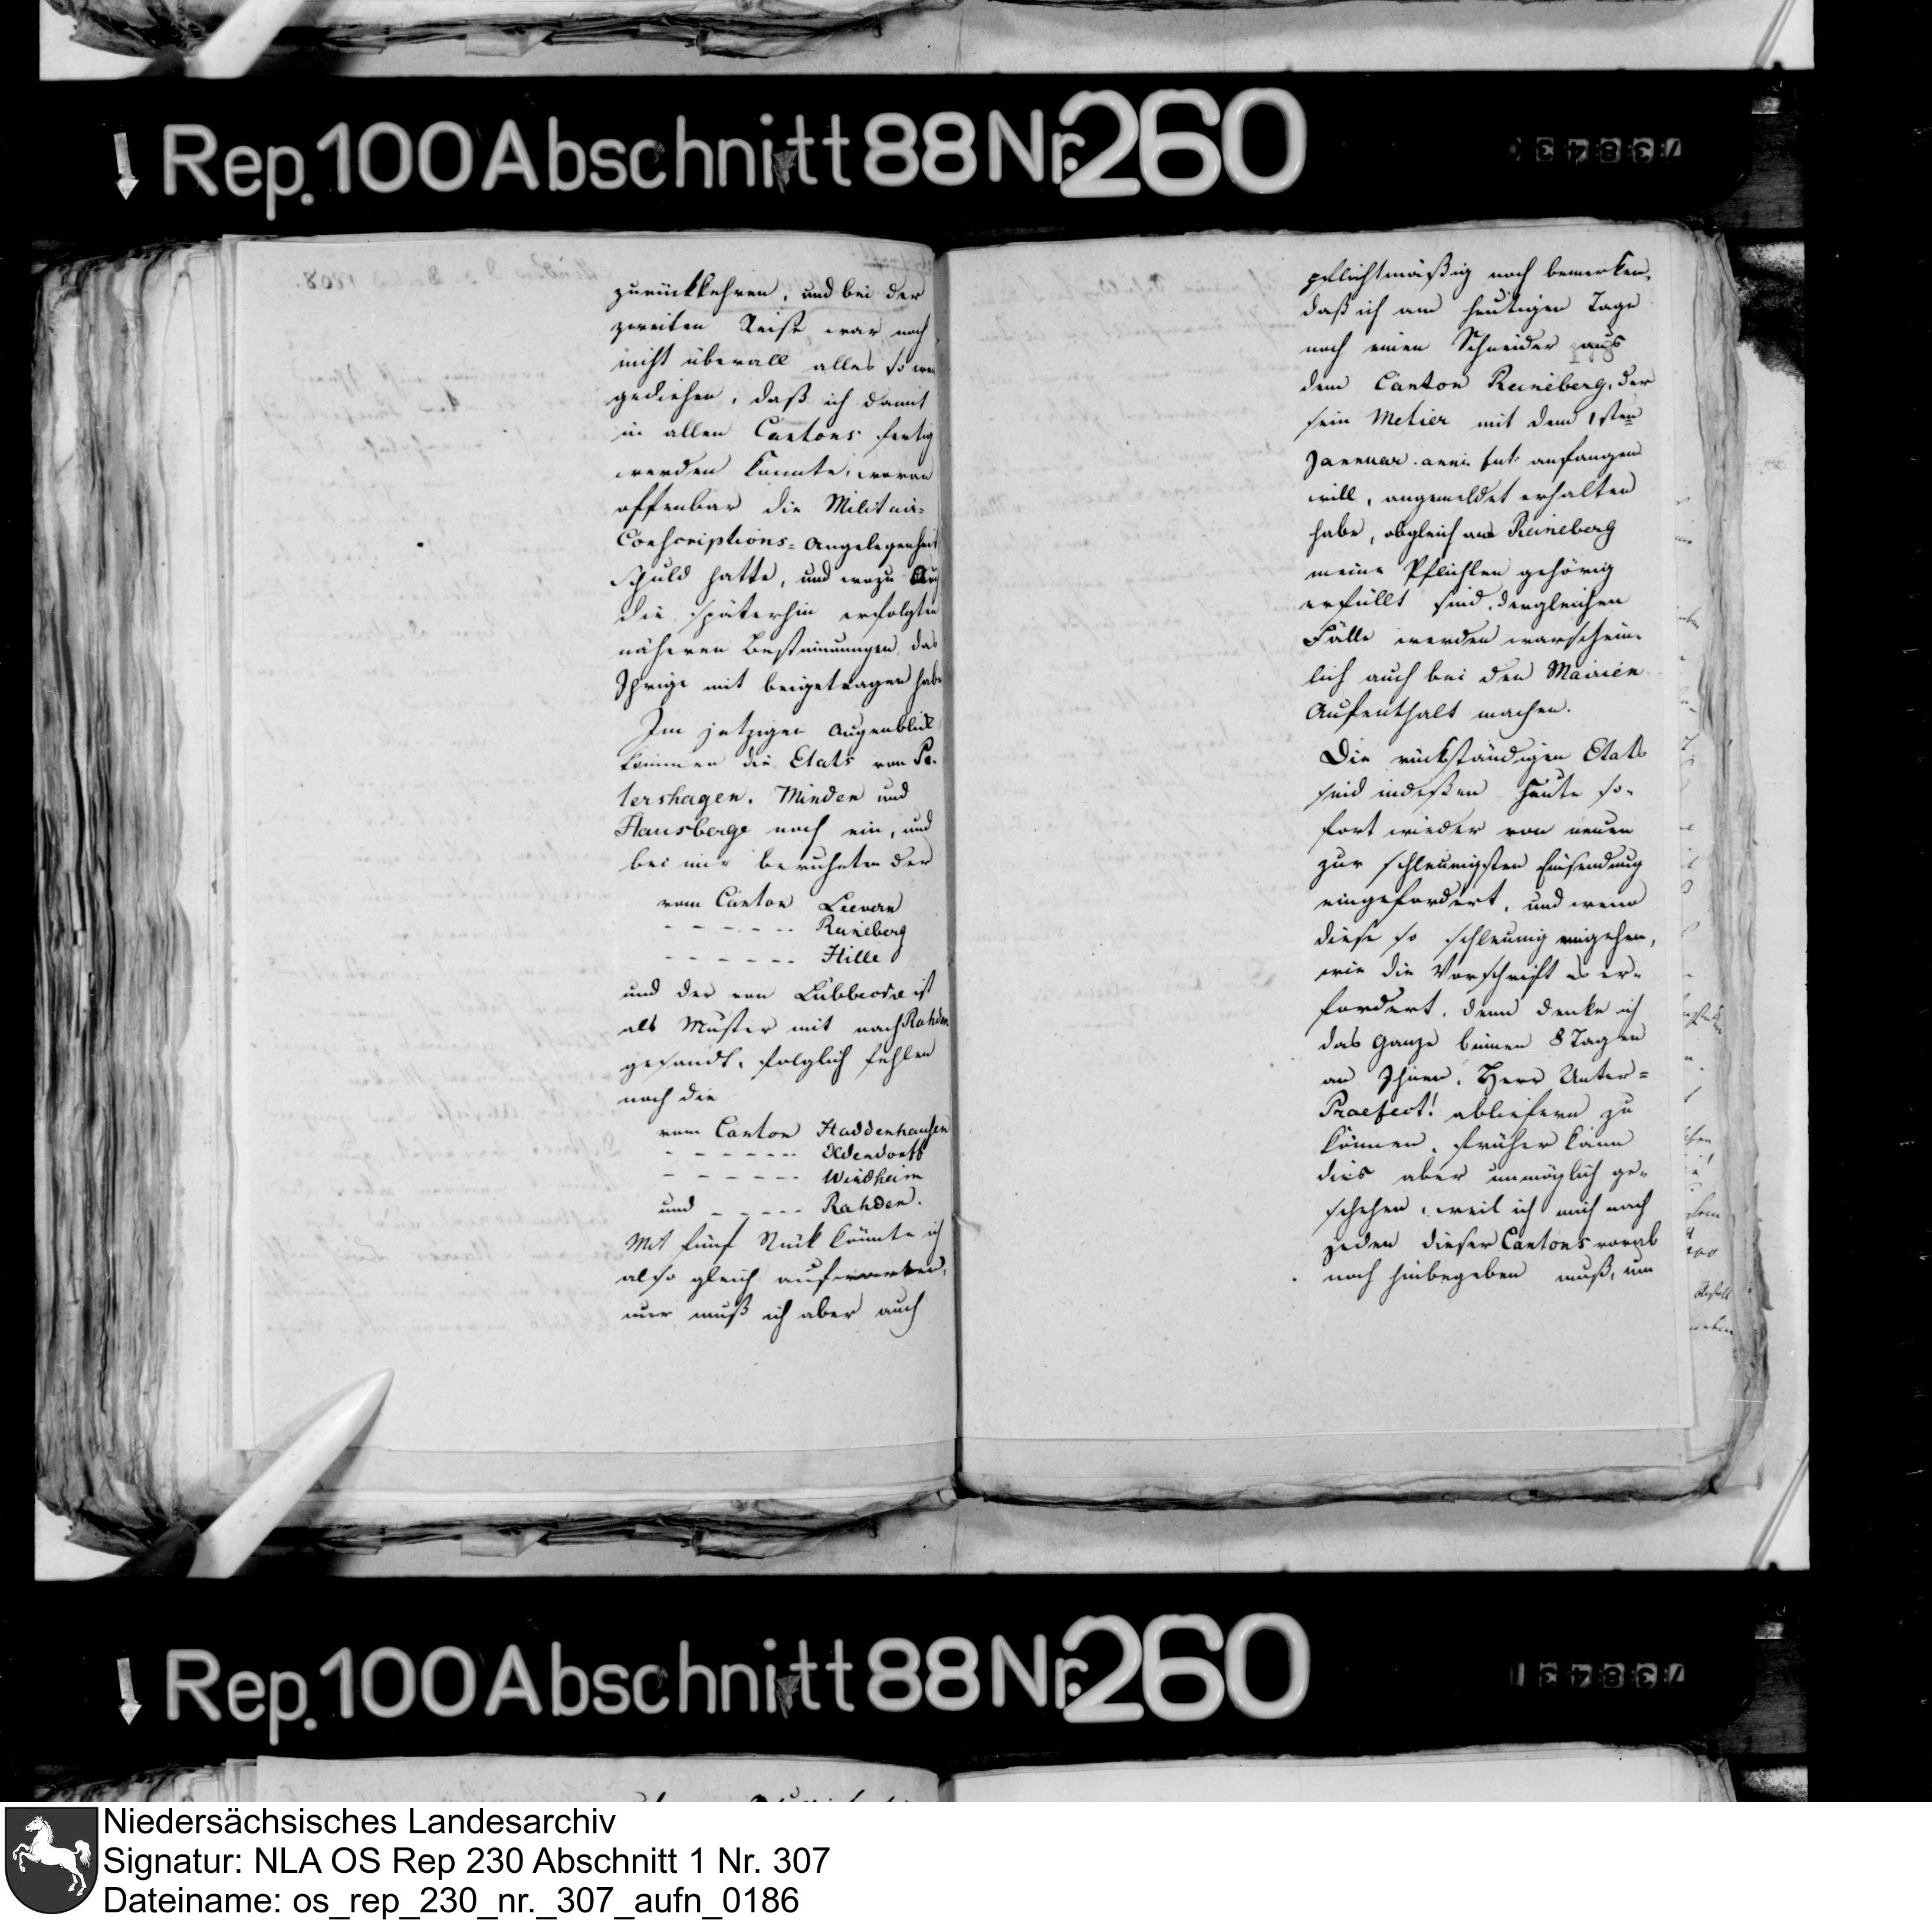 Rep. 100 Abschnitt 88 Nr. 260
zurückkehren, und bei der
zweiten Reise war noch
nicht überall alles so weit
gediehen, daß ich damit
in allen Cantons fertig
werden konnte, woran
offenbar die Militair-
Conscriptions-Angelegenheit
Schuld hatte, und wozu auch
die späterhin erfolgten
näheren Bestimmungen das
Ihrige mit beigetragen habe
Im jetzigen Augenblick
kommen die Etats von Pe-
tershagen, Minden und
Hausberge noch ein, und
bei mir beruheten der
vom Canton Levern
- - - - - - Reineberg
- - - - - - Hille
und der von Lübbecke ist
als Muster mit nach Rahden
gesandt, folglich fehlen
noch die
vom Canton Haddenhausen
- - - - - - Oldendorff
- - - - - - Windheim
und - - - - Rahden.
Mit fünf Stück könnte ich
also gleich aufwarten,
nur muß ich aber auch
pflichtmäßig noch bemerken,
daß ich am heutigen Tage
noch einen Schneider aus
dem Canton Reineberg, der
sein Metier mit dem 1sten
Jannuar anni fut: anfangen
will, angemeldet erhalten
habe, obgleich aus Reineberg
meine Pflichten gehörig
erfüllt sind, dergleichen
Fälle werden warschein-
lich auch bei den Mairien
Aufenthalt machen.
Die rückständigen Etats
sind indeßen heute so-
fort wieder von neuen
zur schleunigsten Einsendung
eingefordert, und wenn
diese so schleunig eingehen,
wie die Vorschrift es er-
fordert, denn denke ich
das Ganze binnen 8 Tagen
an Ihnen, Herr Unter-
Praefect! abliefern zu
können, früher kann
dies aber unmöglich ge-
schehen, weil ich mich nach
jeden dieser Cantons vorab
noch hinbegeben muß, um
Rep. 100 Abschnitt 88 Nr. 260
Niedersächsisches Landesarchiv
Signatur: NLA OS Rep 230 Abschnitt 1 Nr. 307
Dateiname: os_rep_230_nr._307_aufn_0186